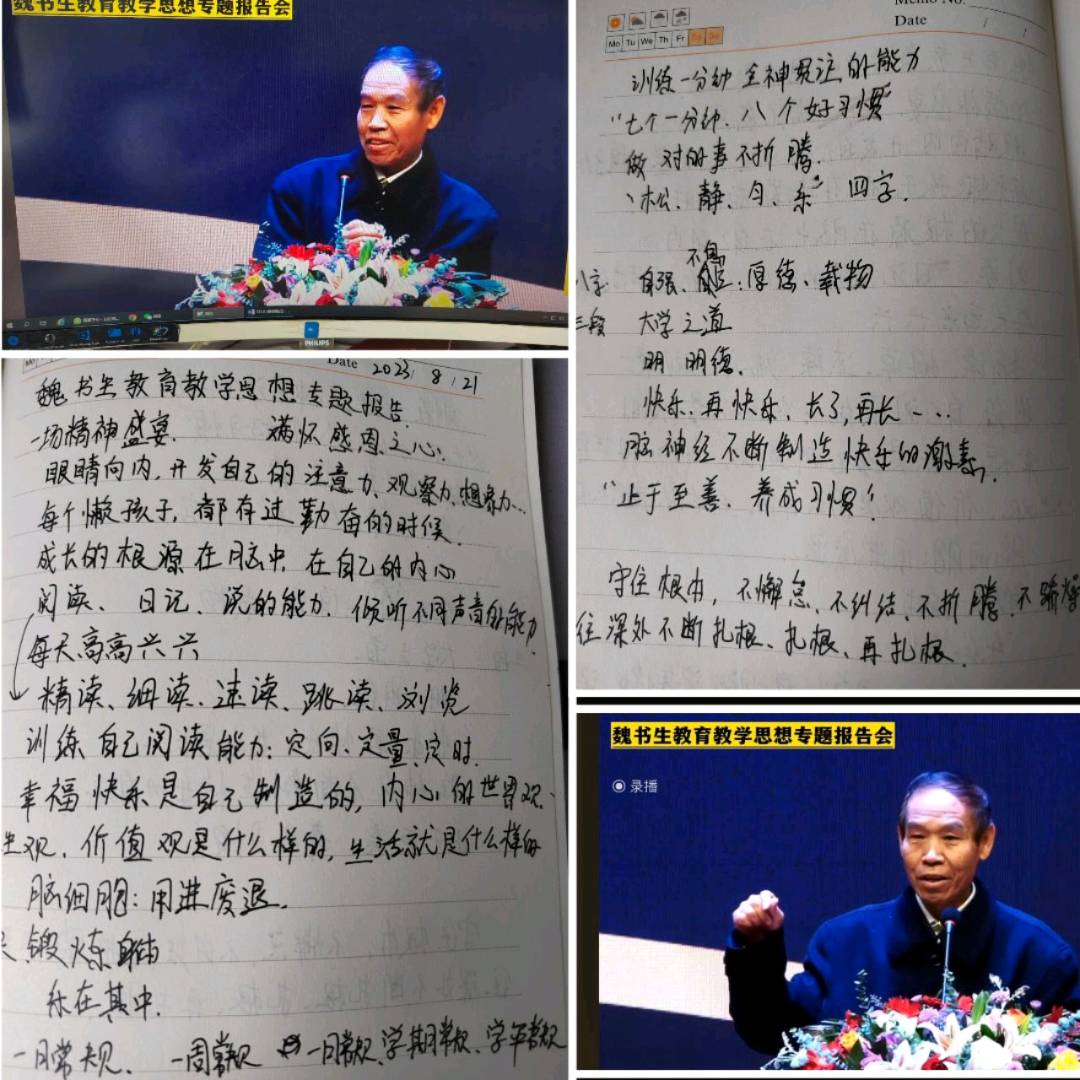 魏书生教育教学思想专题报告会
PHILIPS
Date 2023 / 8 / 21
魏书生教育教学思想专题报告.
一场精神盛宴. 满怀感恩之心.
眼睛向内,开发自己的注意力、观察力、想象力...
每个懒孩子,都有过勤奋的时候.
成长的根源在脑中,在自己的内心
阅读、日记、说的能力、倾听不同声音的能力.
每天高高兴兴
精读、细读、速读、跳读、浏览
训练自己阅读能力:定向、定量、定时.
幸福快乐是自己制造的,内心的世界观、
生观、价值观是什么样的,生活就是什么样的
脑细胞:用进废退.
锻炼自由
乐在其中.
一日常规、一周常规 一月常规、学期常规、学年常规
Memo No.
Date / /
Mo Tu We Th Fr Sa Su
训练一分钟全神贯注的能力
"七个一分钟、八个好习惯"
做对的事不折腾.
"松、静、匀、乐"四字.
八字 自强、不息:厚德、载物
三段 大学之道
明明德.
快乐、再快乐、长了,再长...
脑神经不断制造快乐的激素,
"止于至善、养成习惯".
守住根由,不懈怠、不纠结、不折腾、不骄燥
往深处不断扎根、扎根、再扎根.
魏书生教育教学思想专题报告会
录播